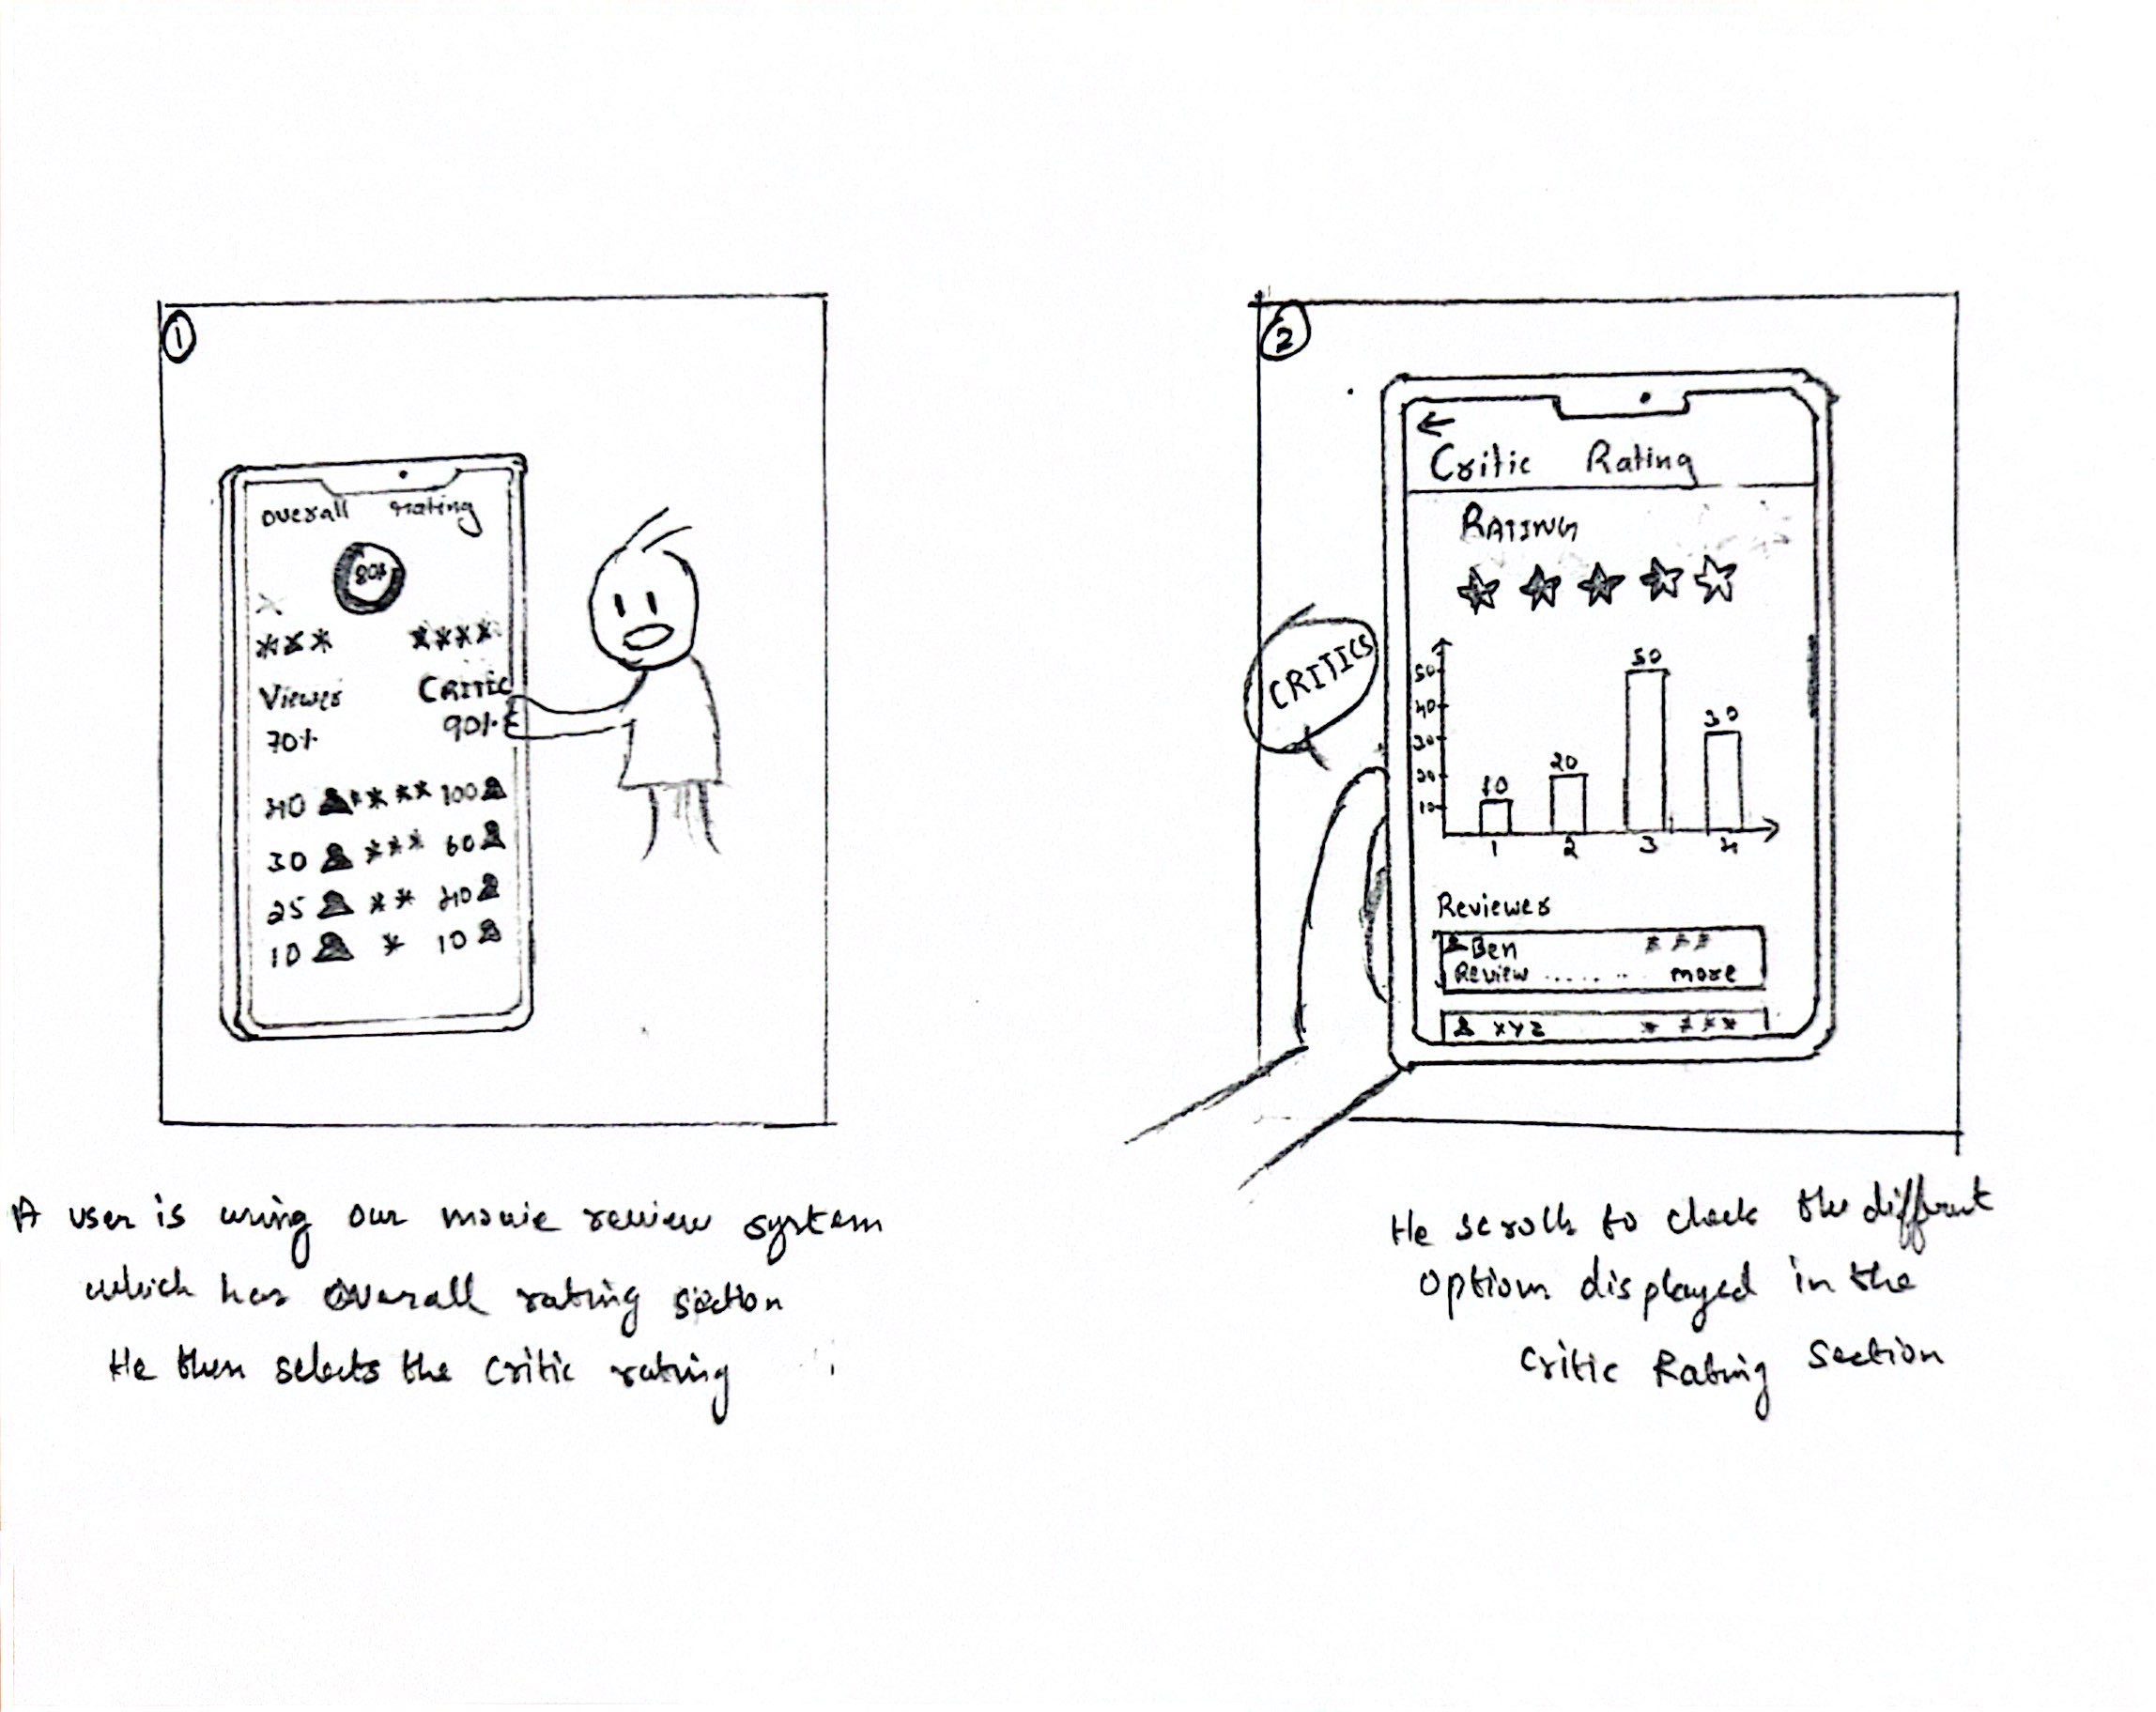 1
overall rating
80%
*** ****
Viewer CRITIC
70% 90%
40 **** 100
30 *** 60
25 ** 40
10 * 10
A user is using our movie review system
which has overall rating section
He then selects the critic rating
2
CRITICS
←
Critic Rating
RATING
50
40
30
20
10
10 20 50 30
1 2 3 4
Reviewer
Ben ***
Review ....... more
XYZ ****
He scrolls to check the different
options displayed in the
Critic Rating Section